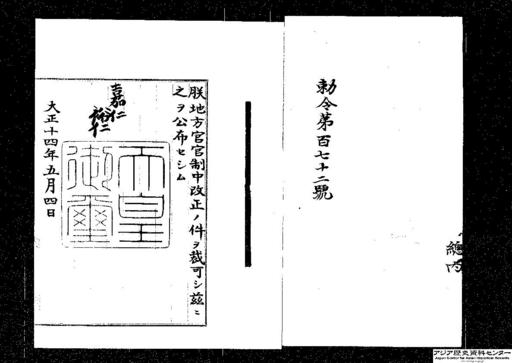 勅令第百七十二號
總內
朕地方官官制中改正ノ件ヲ裁可シ茲ニ
之ヲ公布セシム
嘉仁
裕仁
天皇
御璽
大正十四年五月四日
アジア歴史資料センター
Japan Center for Asian Historical Records